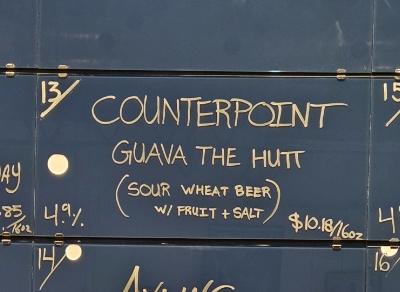 13/
COUNTERPOINT
GUAVA THE HUTT
(SOUR WHEAT BEER
W/ FRUIT + SALT)
4.9%
$10.18/16oz
14/
15
16/